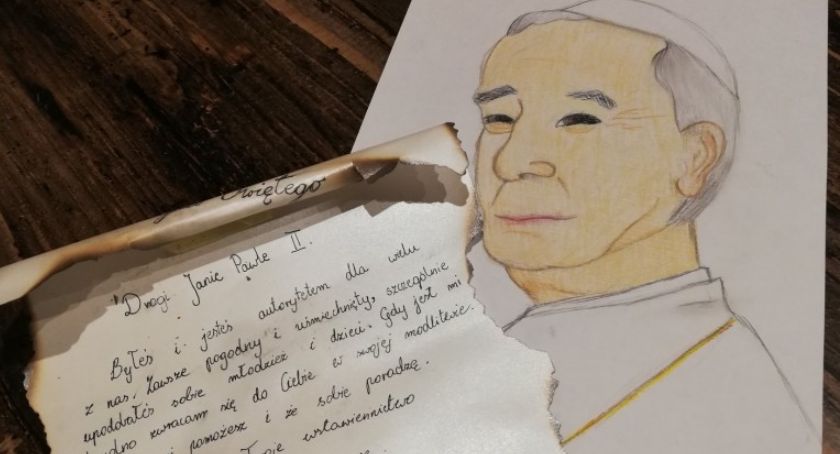 Świętego
Drogi Janie Pawle II.
Byłeś i jesteś autorytetem dla wielu
z nas. Zawsze pogodny i uśmiechnięty, szczególnie
upodobałeś sobie młodzież i dzieci. Gdy jest mi
zwracam się do Ciebie w swojej modlitwie.
pomożesz i że sobie poradzę.
wstawiennictwo